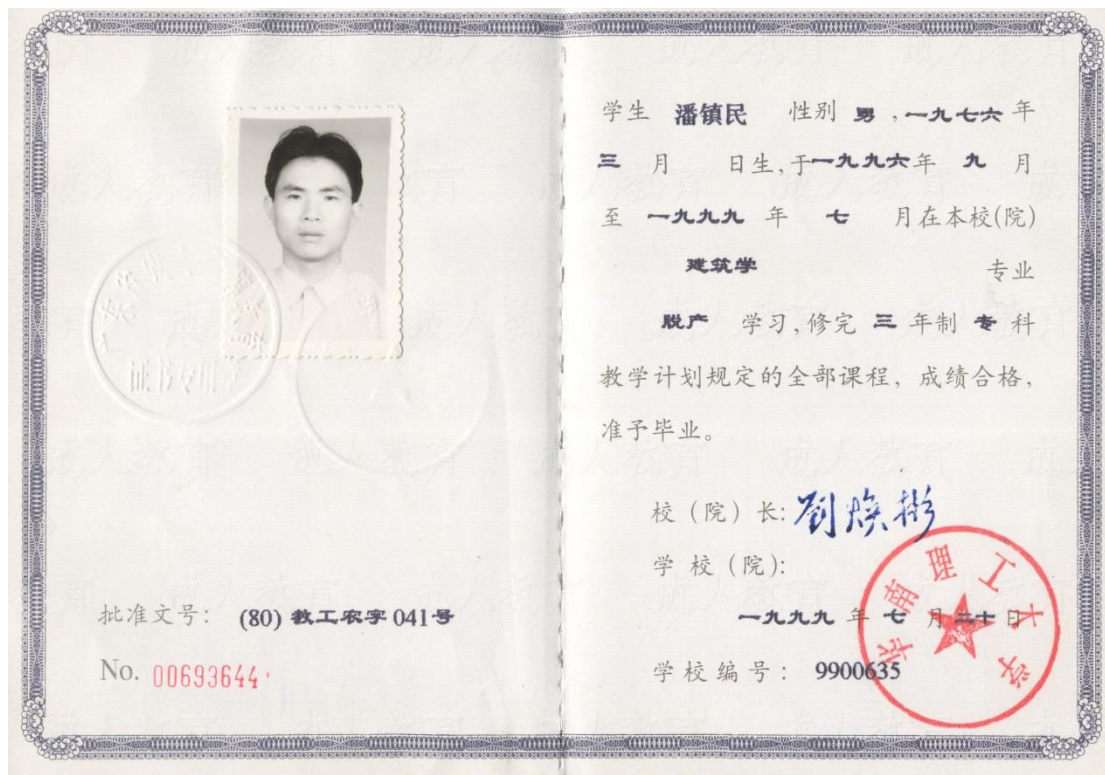 批准文号: (80) 教工农字 041号
No. 00693644
证书专用章
学生 潘镇民 性别 男 , 一九七六 年
三 月 日生, 于一九九六年 九 月
至 一九九九 年 七 月在本校(院)
建筑学 专业
脱产 学习, 修完 三 年制 专 科
教学计划规定的全部课程, 成绩合格,
准予毕业。
校 (院) 长: 刘焕彬
学 校 (院):
华南理工大学
一九九九 年 七 月 二十 日
学 校 编 号: 9900635
成人教育